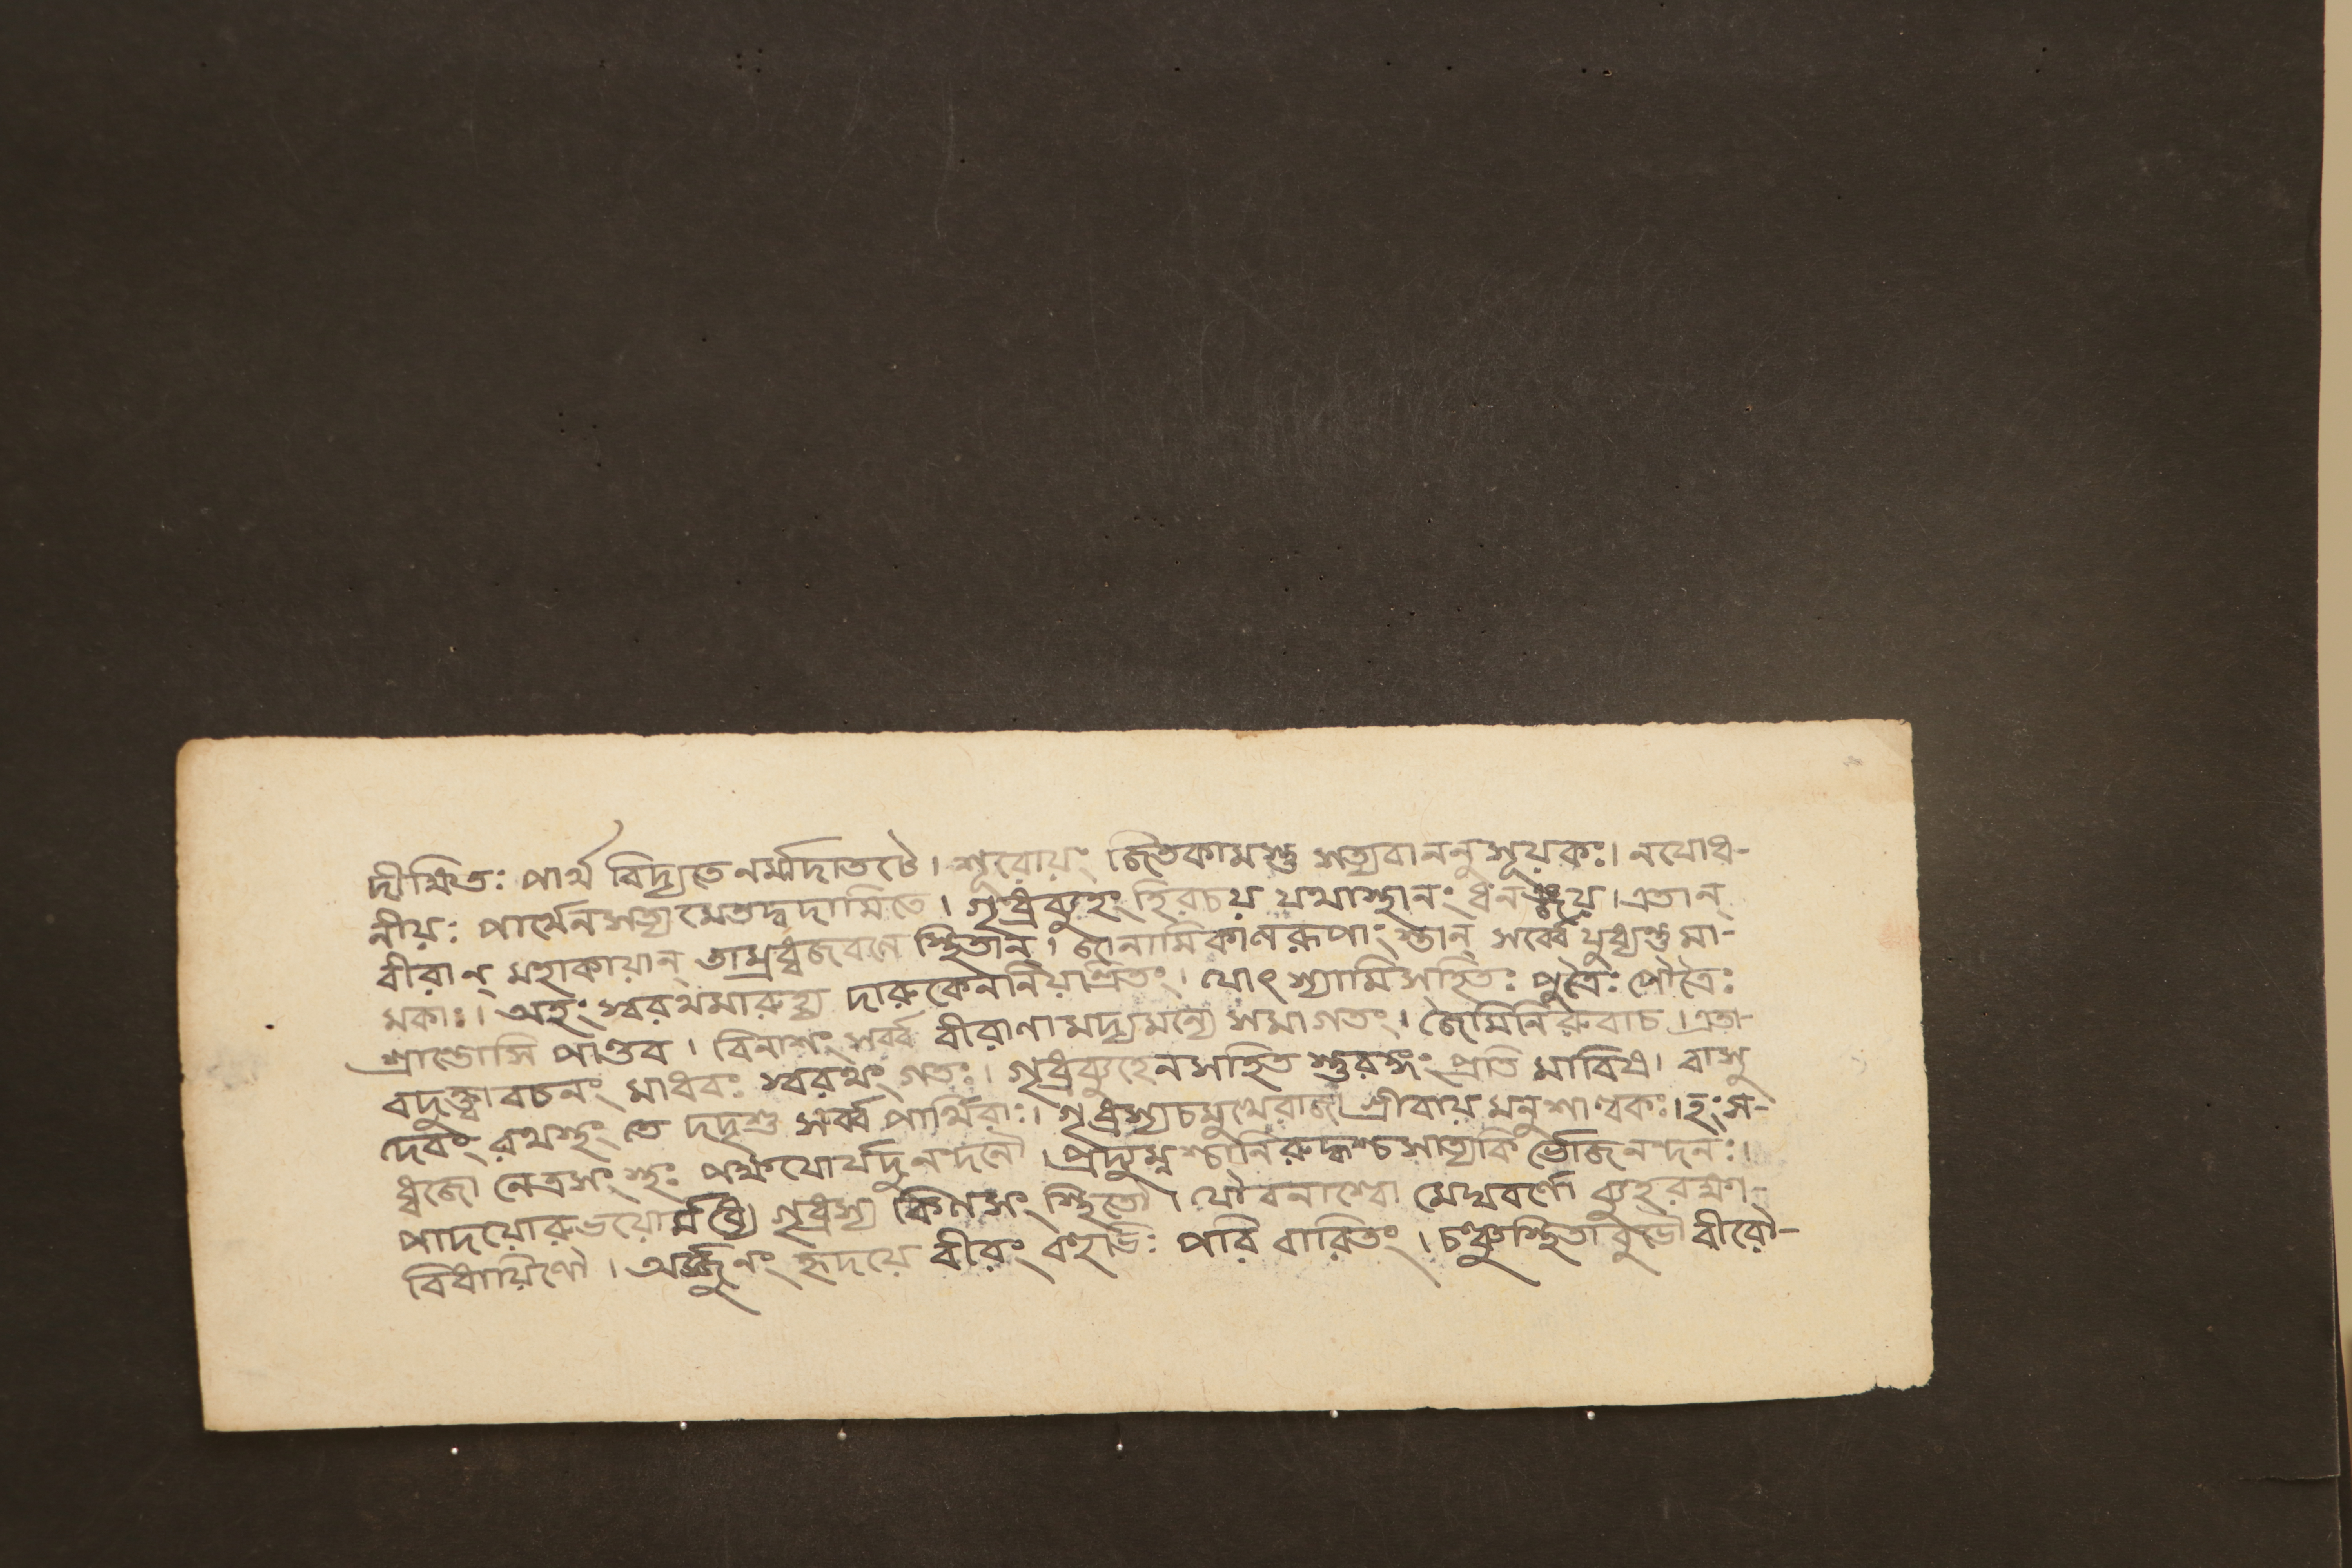 দীক্ষিতঃ পার্থ বিদ্যতে নর্ম্মদাতটে। শূরোয়ং জিতকামস্তু সত্যবাননুসূয়কঃ। নযোধ-
নীয়ঃ পার্থেন সত্যমেতদ্বদামিতে। গৃধ্রব্যুহং হিরচয় যথাস্থানং ধনঞ্জয়। এতান্
বীরান্ মহাকায়ান্ তাম্রধ্বজবণে স্থিতান্। জানামি কালরূপাং স্তান্ সর্ব্বে যুধ্যন্তু মা-
মকাঃ। অহং স্বরথমারুহ্য দারুকেন নিয়ন্ত্রিতং। যোৎস্যামি সহিতঃ পুত্রৈঃ পৌত্রৈঃ
শ্রান্তোসি পাণ্ডব। বিনাশং সর্ব্ব বীরাণামদ্যমন্যে সমাগতং। জৈমিনিরুবাচ। এতা-
বদুক্ত্বা বচনং মাধবঃ স্বরথং গতঃ। গৃধ্রব্যুহেন সহিত স্তুরঙ্গং প্রতি মারিষ। বাসু
দেবং রথস্থং তে দদৃশু সর্ব্ব পার্থিবাঃ। গৃধ্রস্য চ মুখে রাজা গ্রীবায়মনুশাল্বকঃ। হংস-
ধ্বজো নেত্রসংস্থঃ পক্ষযোর্যদুনন্দনৌ। প্রদ্যুম্নশ্চানিরুদ্ধশ্চ সাত্যকি র্ভোজনন্দনঃ।
পাদয়োরুভয়োর্মধ্যে গৃধ্রস্য কিল সংস্থিতৌ। যৌবনাশ্বো মেঘবর্ণো ব্যুহরক্ষণ-
বিধায়িণৌ। অর্জ্জুনং হৃদয়ে বীরং বহুভিঃ পরি বারিতং। চঞ্চুস্থিতাবুভৌ বীরৌ-